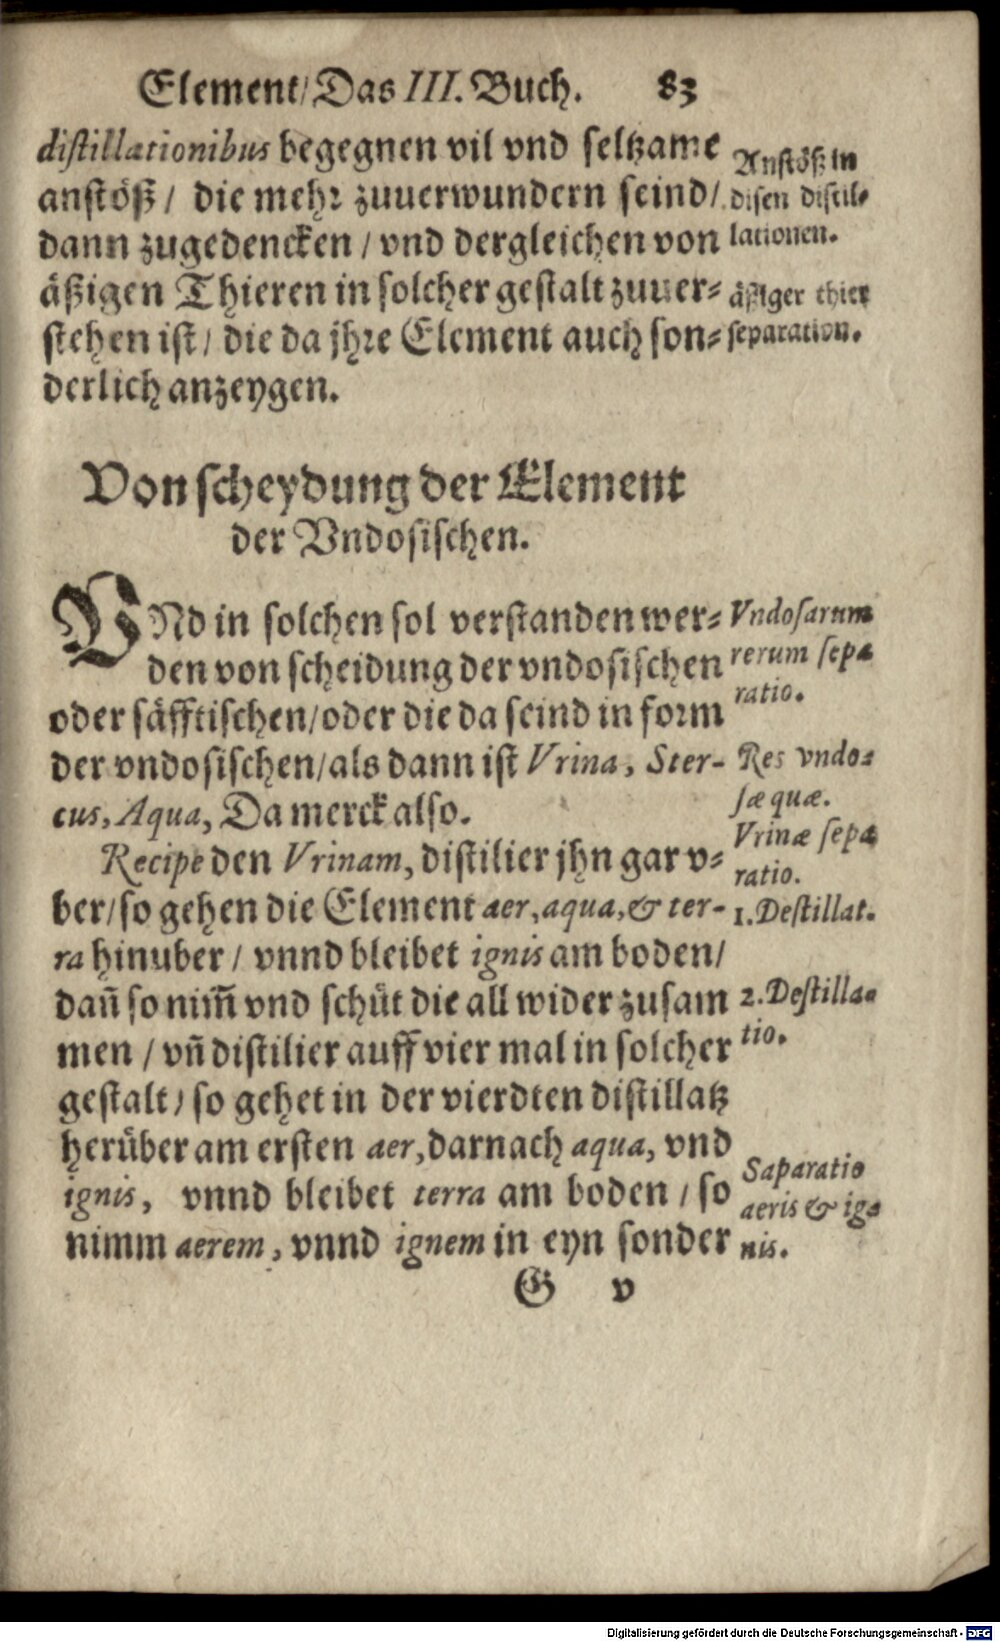 Element/Das III. Buch. 83
distillationibus begegnen vil vnd seltzame
anstöß / die mehr zuuerwundern seind/
dann zugedencken / vnd dergleichen von
äßigen Thieren in solcher gestalt zuuer-
stehen ist / die da jhre Element auch son-
derlich anzeygen.
Anstöß in
disen distil-
lationen.
äßiger thier
separation.
Von scheydung der Element
der Vndosischen.
VNd in solchen sol verstanden wer-
den von scheidung der vndosischen
oder säfftischen/oder die da seind in form
der vndosischen/als dann ist Vrina, Ster-
cus, Aqua, Da merck also.
Vndosarum
rerum sepa
ratio.
Res vndo-
sæ quæ.
Recipe den Vrinam, distilier jhn gar v-
ber/so gehen die Element aer, aqua, & ter-
ra hinuber / vnnd bleibet ignis am boden/
dañ so nim̃ vnd schüt die all wider zusam
men / vñ distilier auff vier mal in solcher
gestalt / so gehet in der vierdten distillatz
herüber am ersten aer, darnach aqua, vnd
ignis, vnnd bleibet terra am boden / so
nimm aerem, vnnd ignem in eyn sonder
Vrinæ sepa
ratio.
1. Destillat.
2. Destilla-
tio.
Saparatio
aeris & ig-
nis.
G v
Digitalisierung gefördert durch die Deutsche Forschungsgemeinschaft - DFG